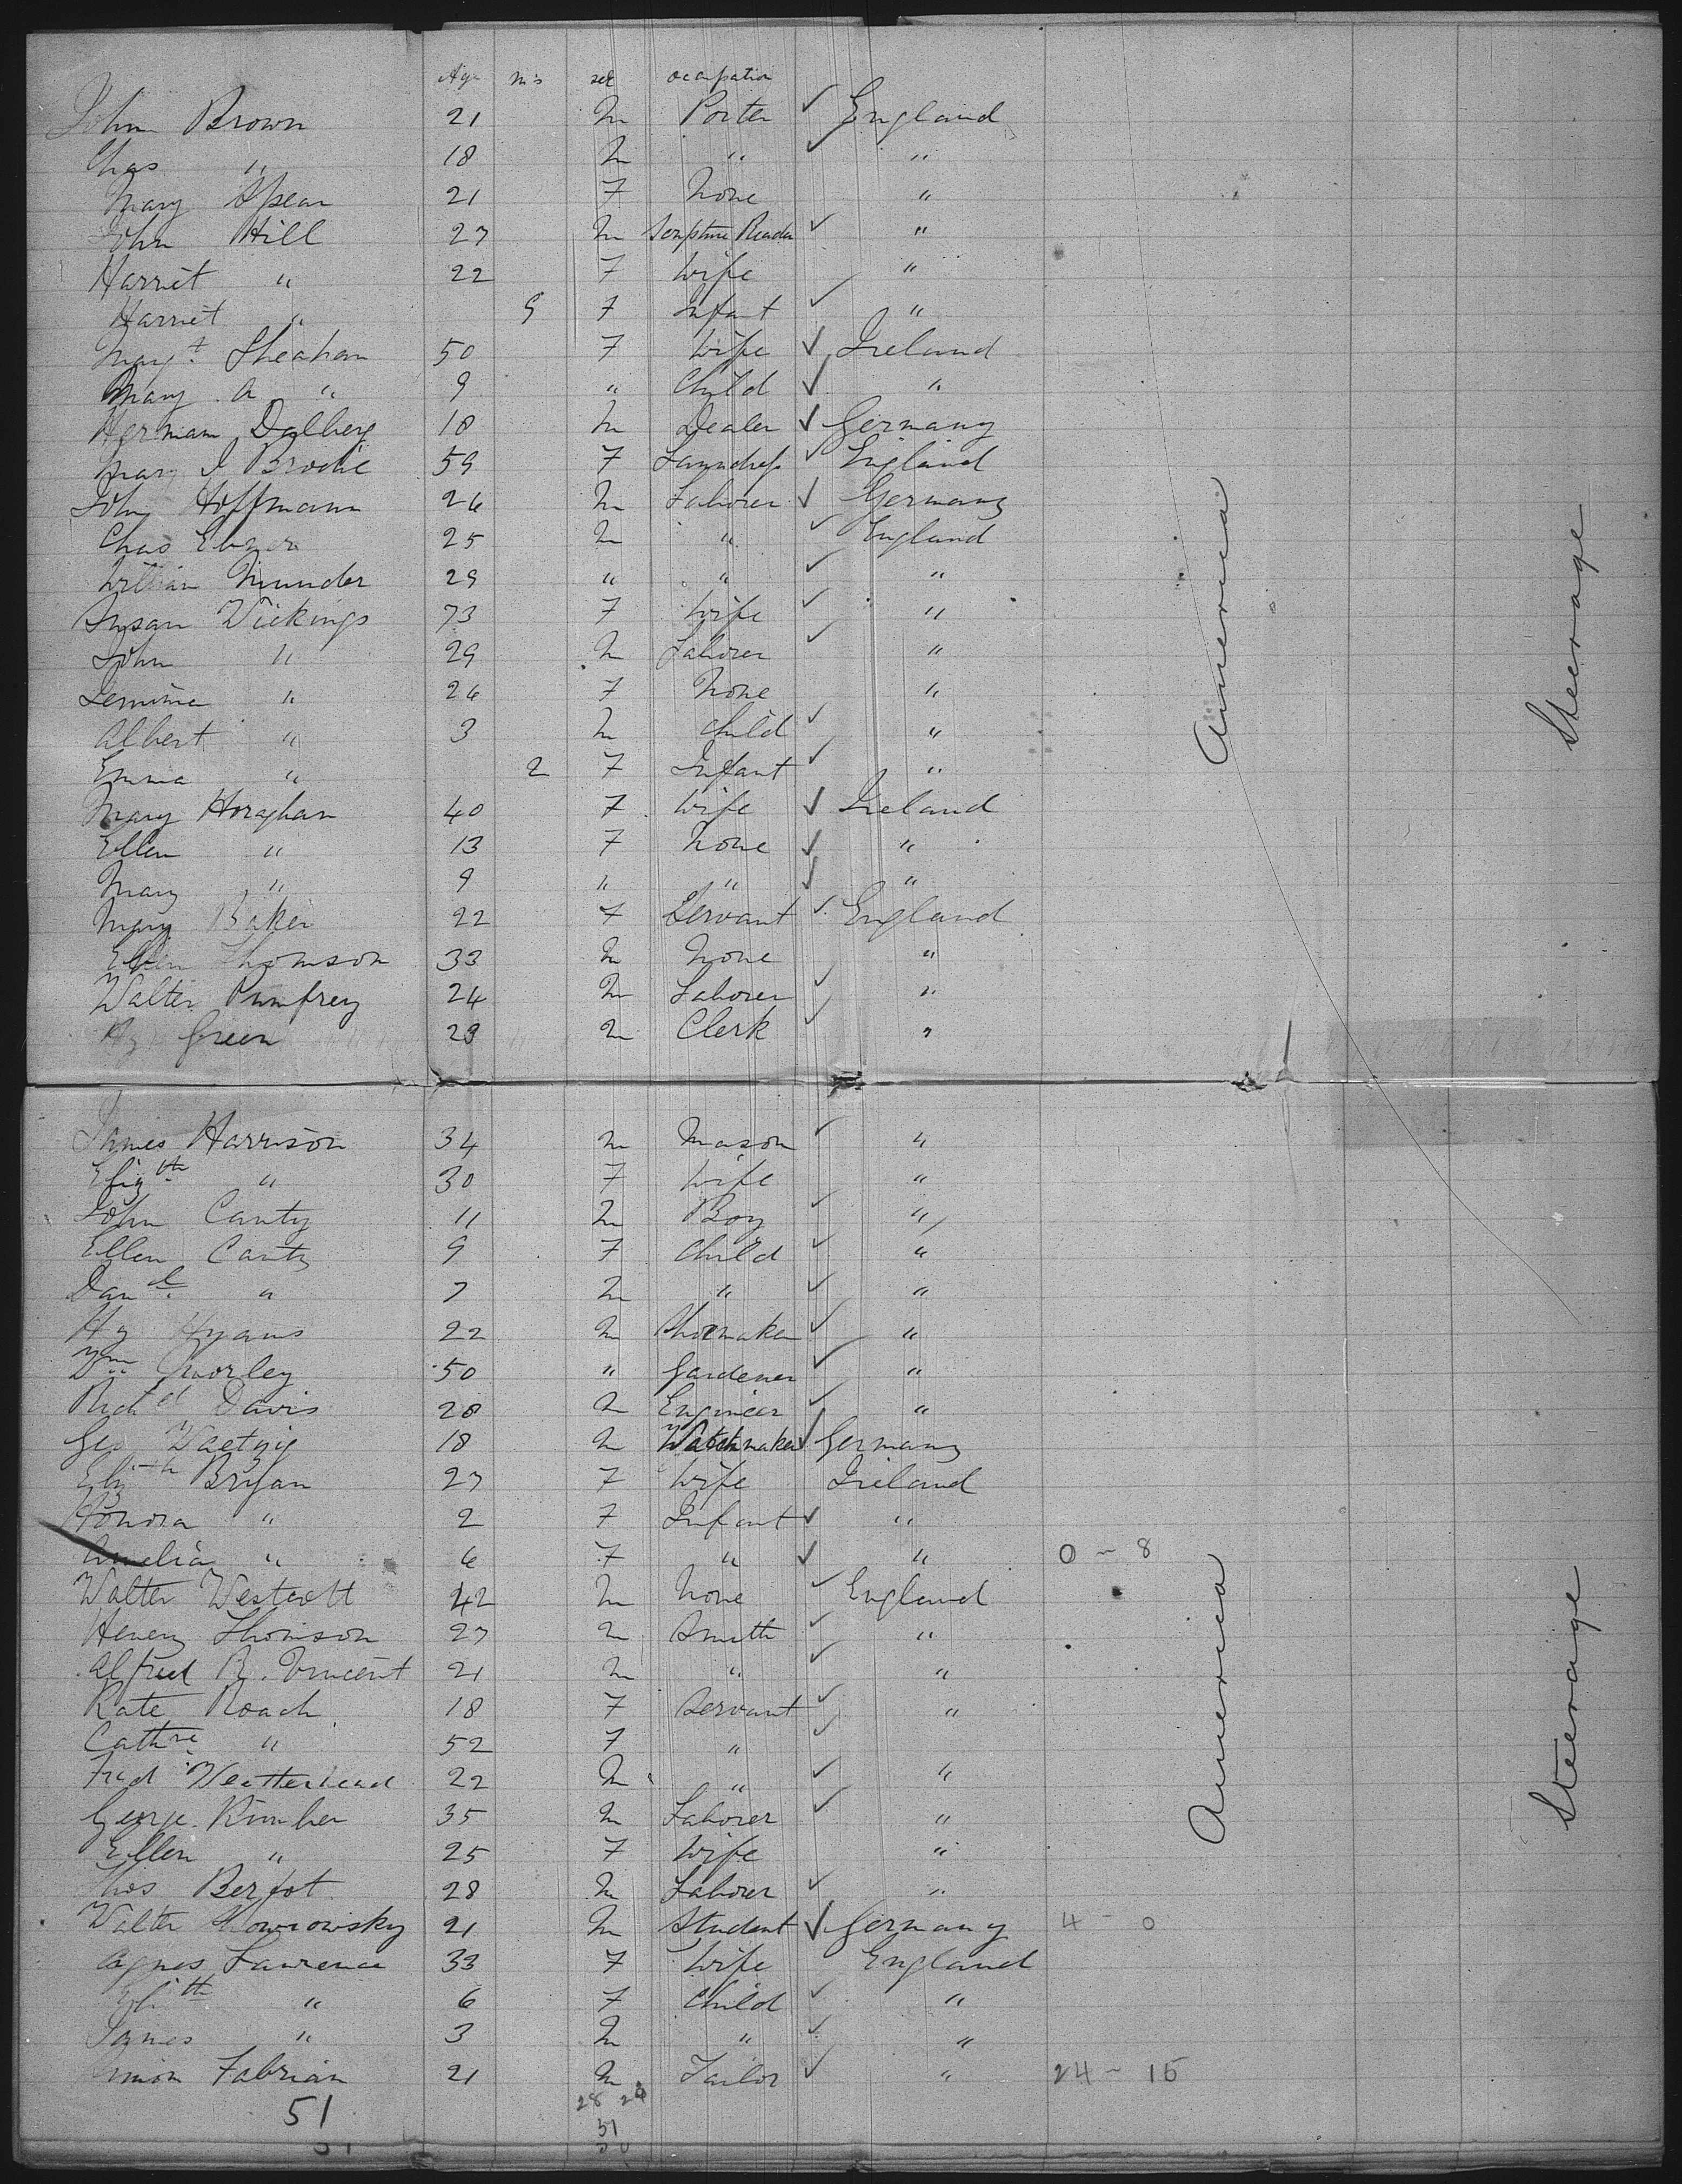 Age ms sex occupation
John Brown 21 M Porter ✓ England
Chas " 18 M " ✓ "
Mary Spear 21 F None "
John Hill 27 M Scripture Reader ✓ "
Harriet " 22 F Wife "
Harriet " 9 F Infant ✓ "
Margt Sheahan 50 F Wife ✓ Ireland
Mary A " 9 " Child ✓ "
Herman Dalberg 18 M Dealer ✓ Germany
Mary J Brodie 59 F Laundress ✓ England
John Hoffmann 26 M Laborer ✓ Germany
Chas 25 M " ✓ England
William Munder 29 " " ✓ "
Susan Wickings 73 F Wife ✓ "
John " 29 M Laborer ✓ "
Jemima " 26 F None "
Albert " 3 M Child ✓ "
Emma " 2 F Infant ✓ "
Mary Horaghan 40 F Wife ✓ Ireland
Ellen " 13 F None ✓ "
Mary " 9 " " ✓ "
Mary Baker 22 F Servant ✓ England
Thomson 33 M None "
Walter Pumfrey 24 M Laborer ✓ "
Hy Green 23 M Clerk ✓ "
America
Steerage
James Harrison 34 M Mason ✓ "
Elizth " 30 F Wife "
John Canty 11 M Boy ✓ "
Ellen Canty 9 F Child ✓ "
Danl " 7 M " ✓ "
Hy Hyams 22 M Shoemaker ✓ "
Wm 50 " Gardener ✓ "
Richd Davis 28 M Engineer ✓ "
Geo 18 M Watchmaker ✓ Germany
Elizth Bryan 27 F Wife Ireland
Honora " 2 F Infant ✓ "
Amelia " 6 F " ✓ " 0 - 8
Walter Westcott 42 M None ✓ England
Henery Thomson 27 M Smith ✓ "
Alfred R. Vincent 21 M " ✓ "
Kate Roach 18 F Servant ✓ "
Cathne " 52 F " ✓
Fred Weatherhead 22 M " ✓ "
George Kimber 35 M Laborer ✓ "
Ellen " 25 F Wife "
Thos Berfot 28 M Laborer ✓ "
Walter 21 M Student ✓ Germany 4 - 0
Agnes Lawrence 33 F Wife England
Elizth " 6 F Child ✓ "
James " 3 M " ✓ "
Fabrian 21 M Tailor ✓ " 24 - 15
America
Steerage
51
28 24
51